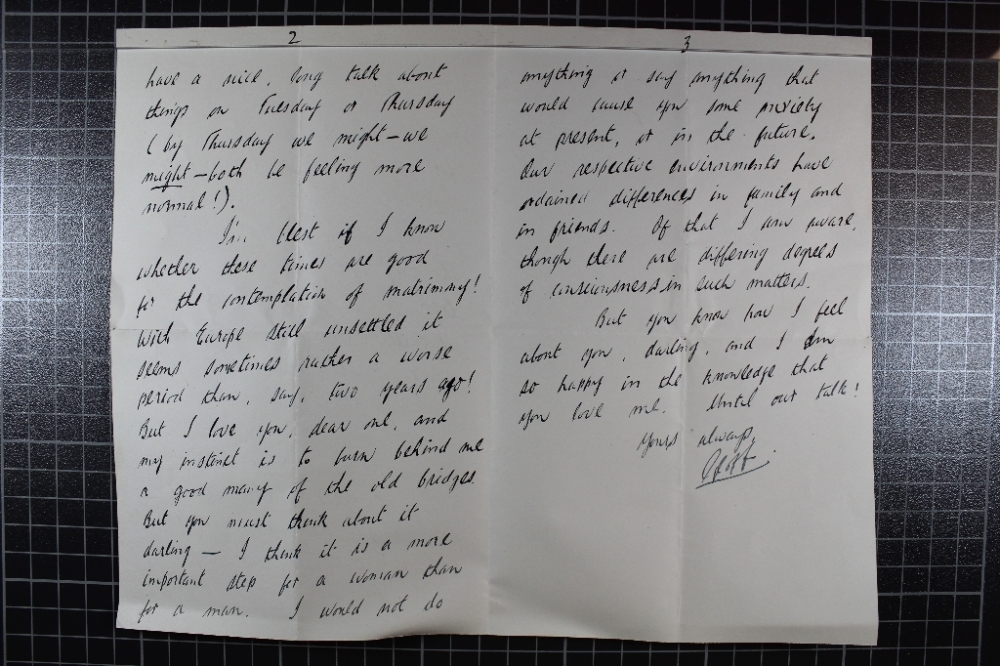 2
have a nice, long talk about
things on Tuesday or Thursday
(by Thursday we might – we
might – both be feeling more
normal!).
I'm blest if I know
whether these times are good
for the contemplation of matrimony!
With Europe still unsettled it
seems sometimes rather a worse
period than, say, two years ago!
But I love you, dear one, and
my instinct is to burn behind me
a good many of the old bridges
But you must think about it
darling — I think it is a more
important step for a woman than
for a man. I would not do
3
anything or say anything that
would cause you some anxiety
at present, or in the future.
Our respective environments have
ordained differences in family and
in friends. Of that I am aware,
though there are differing degrees
of consciousness in such matters.
But you know how I feel
about you, darling, and I am
so happy in the knowledge that
you love me. Until our talk!
Yours always,